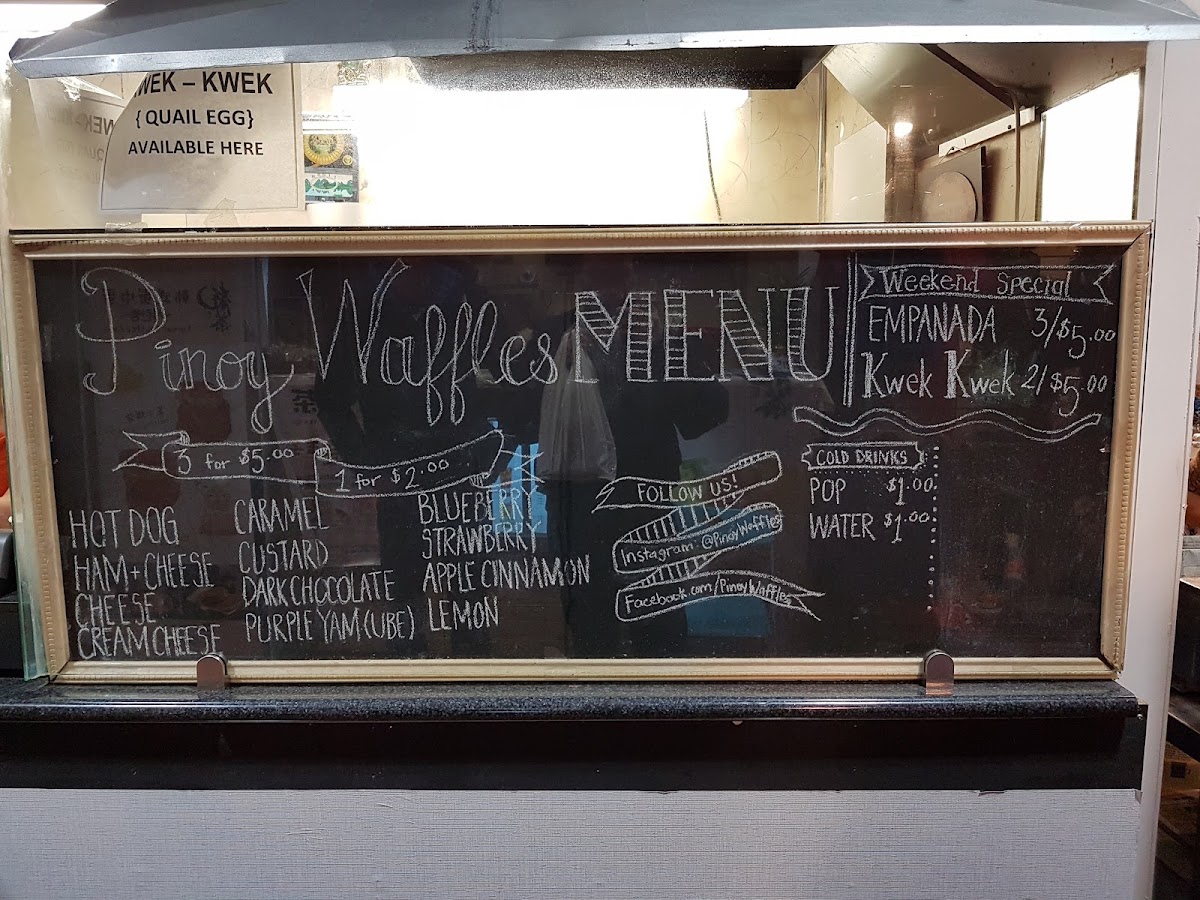 WEK – KWEK
{ QUAIL EGG}
AVAILABLE HERE
Pinoy Waffles MENU
3 for $5.00
1 for $2.00
HOT DOG
HAM+CHEESE
CHEESE
CREAM CHEESE
CARAMEL
CUSTARD
DARK CHOCOLATE
PURPLE YAM (UBE)
BLUEBERRY
STRAWBERRY
APPLE CINNAMON
LEMON
FOLLOW US!
Instagram: @PinoyWaffles
Facebook.com/PinoyWaffles
Weekend Special
EMPANADA 3/$5.00
Kwek Kwek 2/$5.00
COLD DRINKS
POP $1.00
WATER $1.00